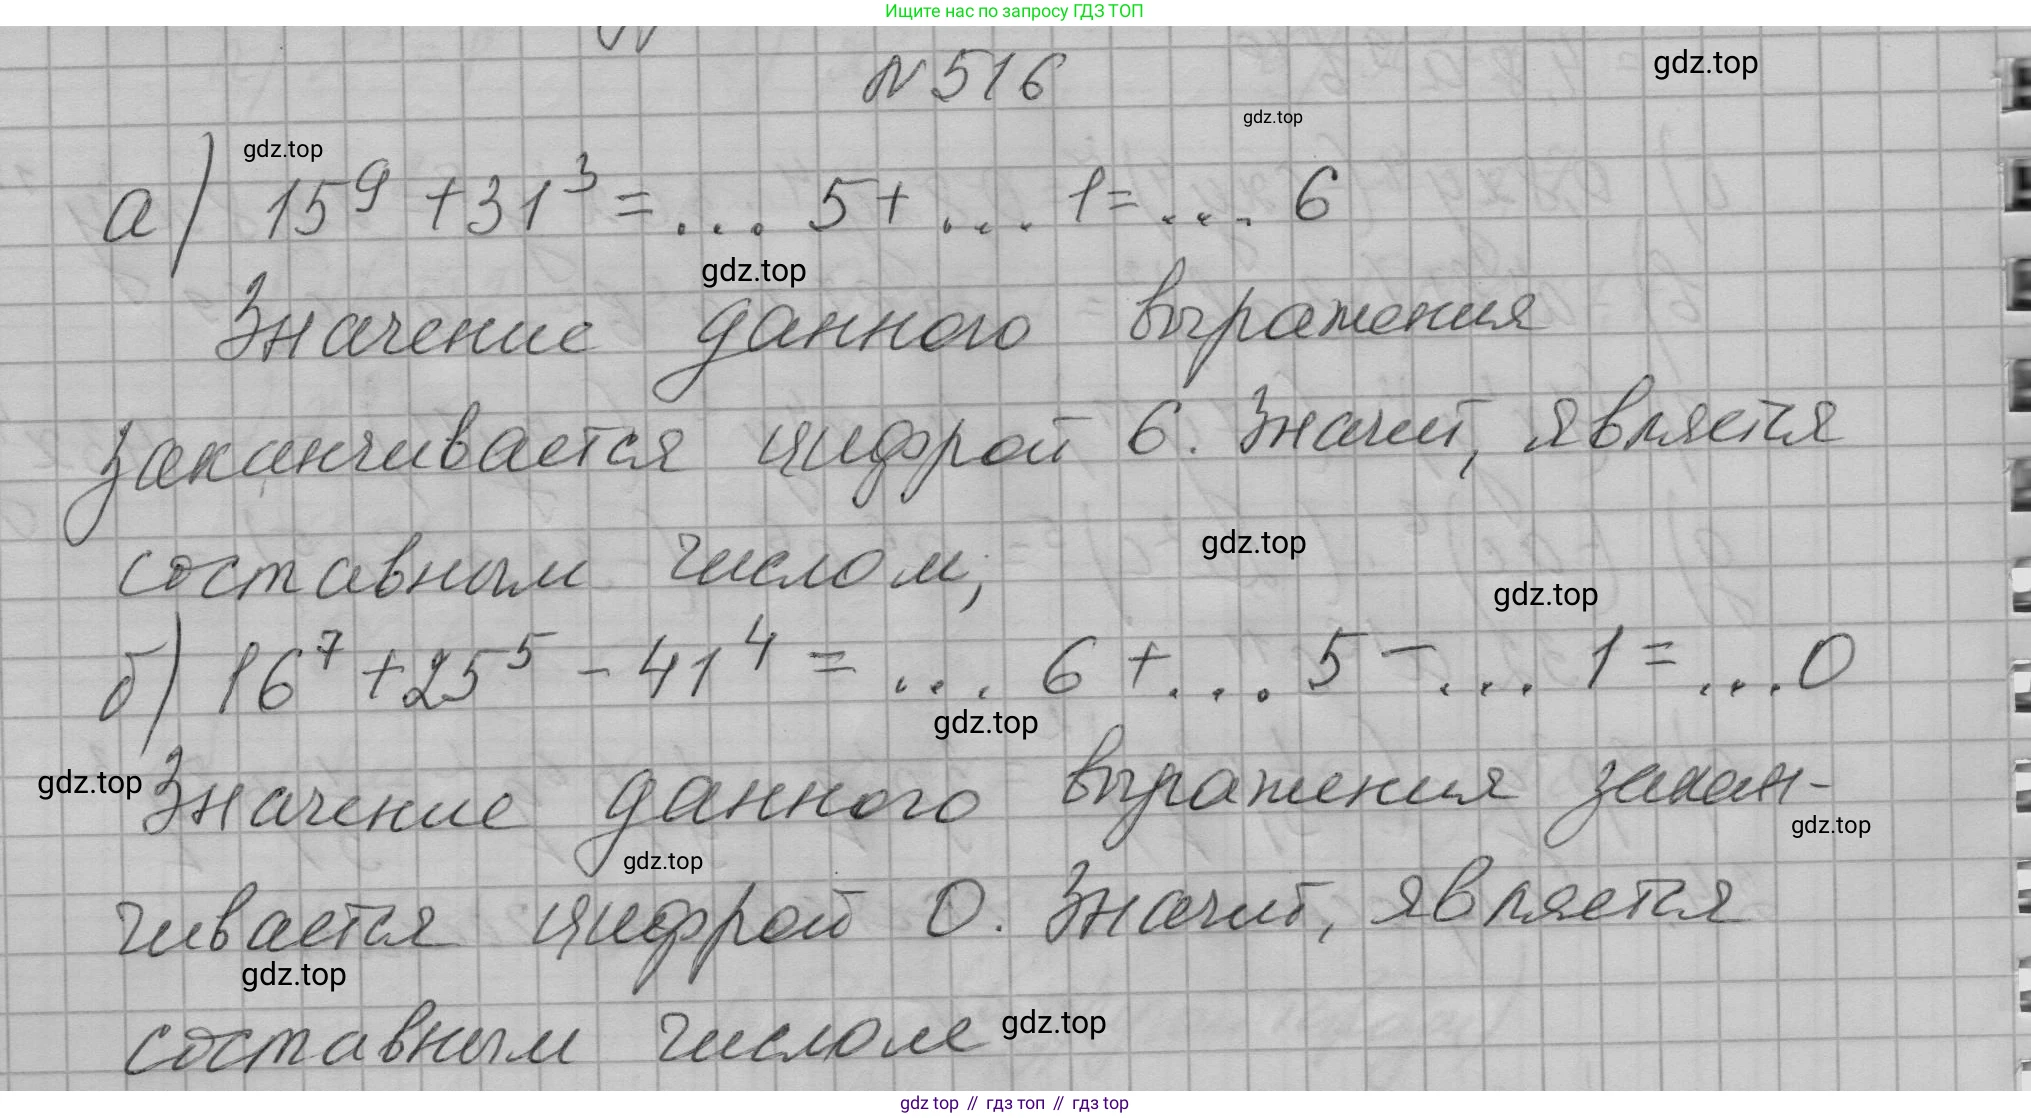 Ищите нас по запросу ГДЗ ТОП
N 516
gdz.top
gdz.top
gdz.top
а) 15⁹ + 31³ = ... 5 + ... 1 = ... 6
gdz.top
Значение данного выражения
заканчивается цифрой 6. Значит, является
составным числом;
gdz.top
gdz.top
б) 16⁷ + 25⁵ - 41⁴ = ... 6 + ... 5 - ... 1 = ... 0
gdz.top
gdz.top
Значение данного выражения закан-
gdz.top
gdz.top
чивается цифрой 0. Значит, является
gdz.top
составным числом
gdz.top
gdz top // гдз топ // гдз top